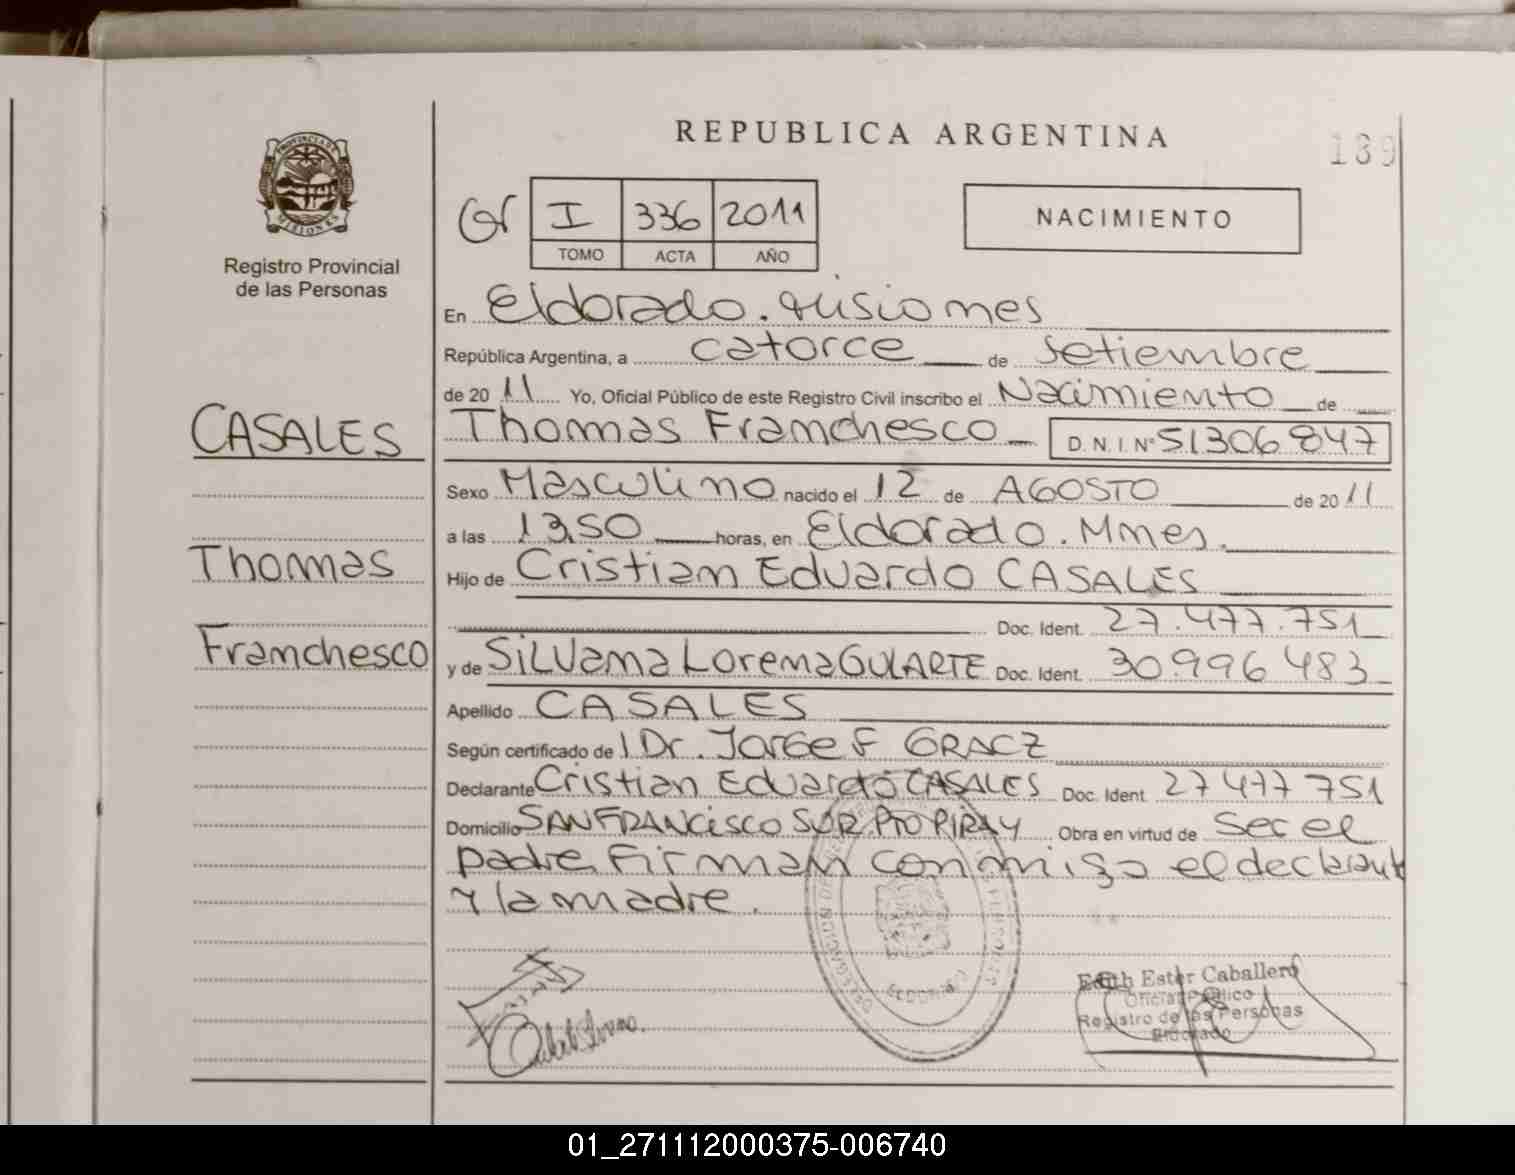 REPUBLICA ARGENTINA
189
PROVINCIA DE
MISIONES
Registro Provincial
de las Personas
Gr I 336 2011
TOMO ACTA AÑO
NACIMIENTO
En Eldorado. Misiones
República Argentina, a catorce de setiembre
de 2011 Yo, Oficial Público de este Registro Civil inscribo el Nacimiento de
CASALES
Thomas Franchesco D.N.I.Nº 51306847
Sexo Masculino nacido el 12 de AGOSTO de 2011
a las 13,50 horas, en Eldorado. Mnes.
Thomas
Hijo de Cristian Eduardo CASALES
Doc. Ident. 27.477.751
Franchesco
y de SiLVana Lorena GULARTE Doc. Ident. 30.996 483
Apellido CASALES
Según certificado de Dr. Jorge F GRACZ
Declarante Cristian Eduardo CASALES Doc. Ident 27 477 751
Domicilio SAN FRANCiSCO SUR. PTO PIRAY Obra en virtud de Ser el
padre, Firman conmigo el declarante
y la madre.
Edith Ester Caballero
Oficial Público
Registro de las Personas
Eldorado
01_271112000375-006740